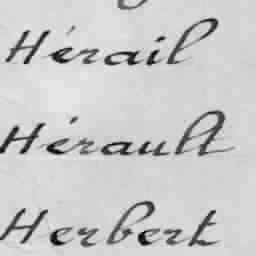 Hérail
Hérault
Herbert